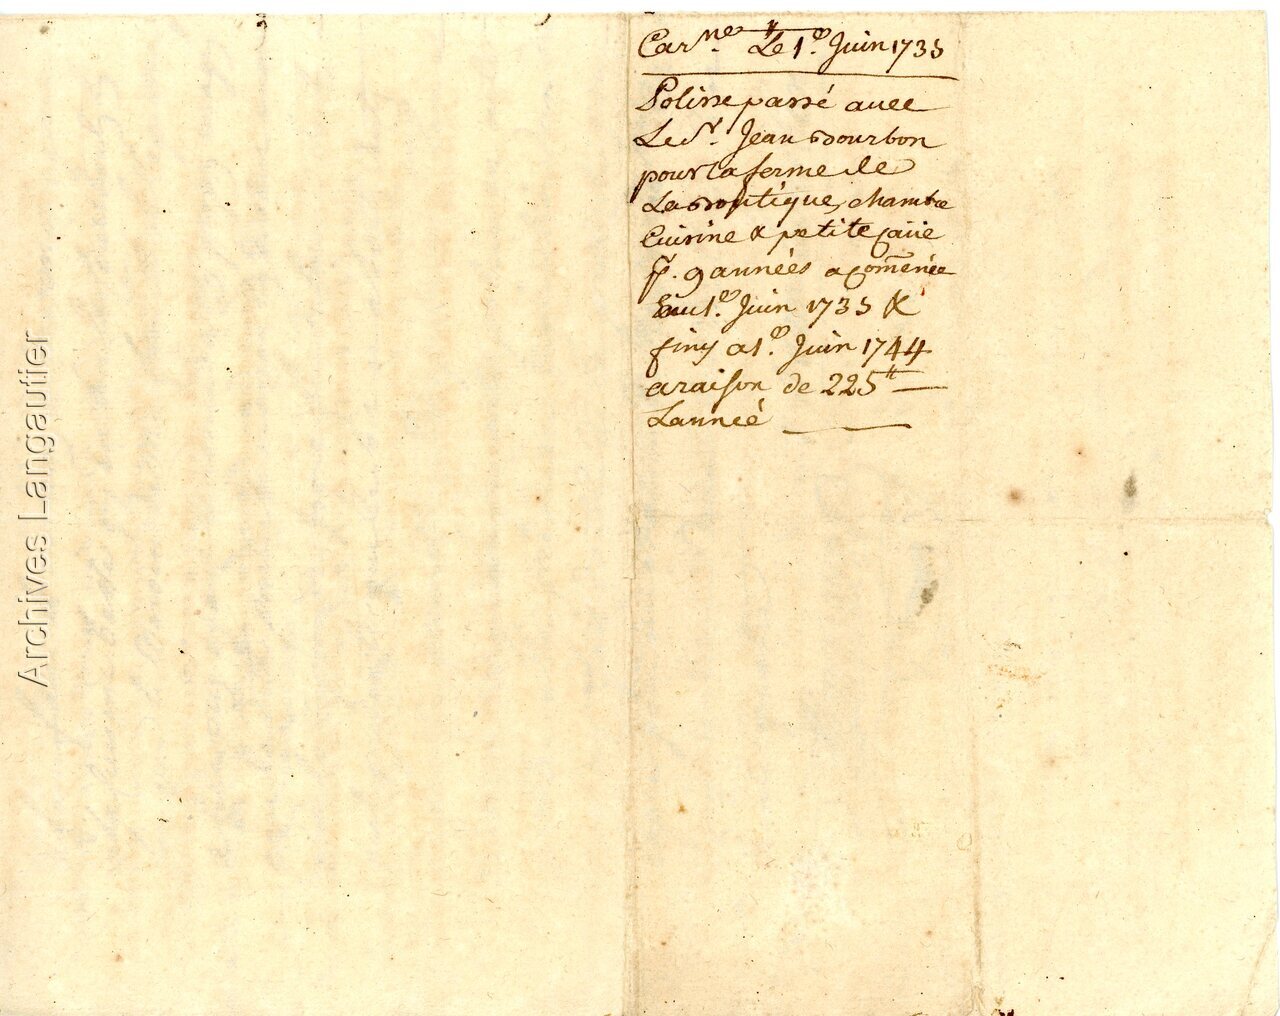 Carne. Le 1er. Juin 1735
Polisse passé avec
Le Sr. Jean Bourbon
pour la ferme de
La Boutique, chambre
Cuisine & petite
pr. 9 années a comencé
au 1er. Juin 1735 &
finy a 1er. Juin 1744
a raison de 225tt
Lanneé
Archives Langautier